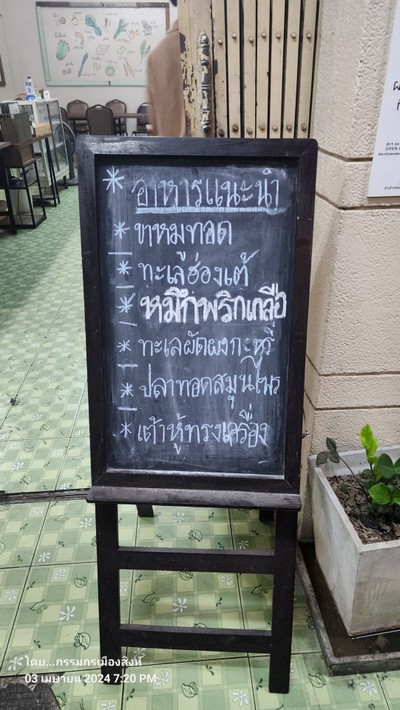 * อาหารแนะนำ
* ขาหมูทอด
* ทะเลฮ่องเต้
* หมึกพริกเกลือ
* ทะเลผัดผงกะหรี่
* ปลาทอดสมุนไพร
* เต้าหู้ทรงเครื่อง
โดย...กรรมกรเมืองสิงห์
03 เมษายน 2024 7:20 PM